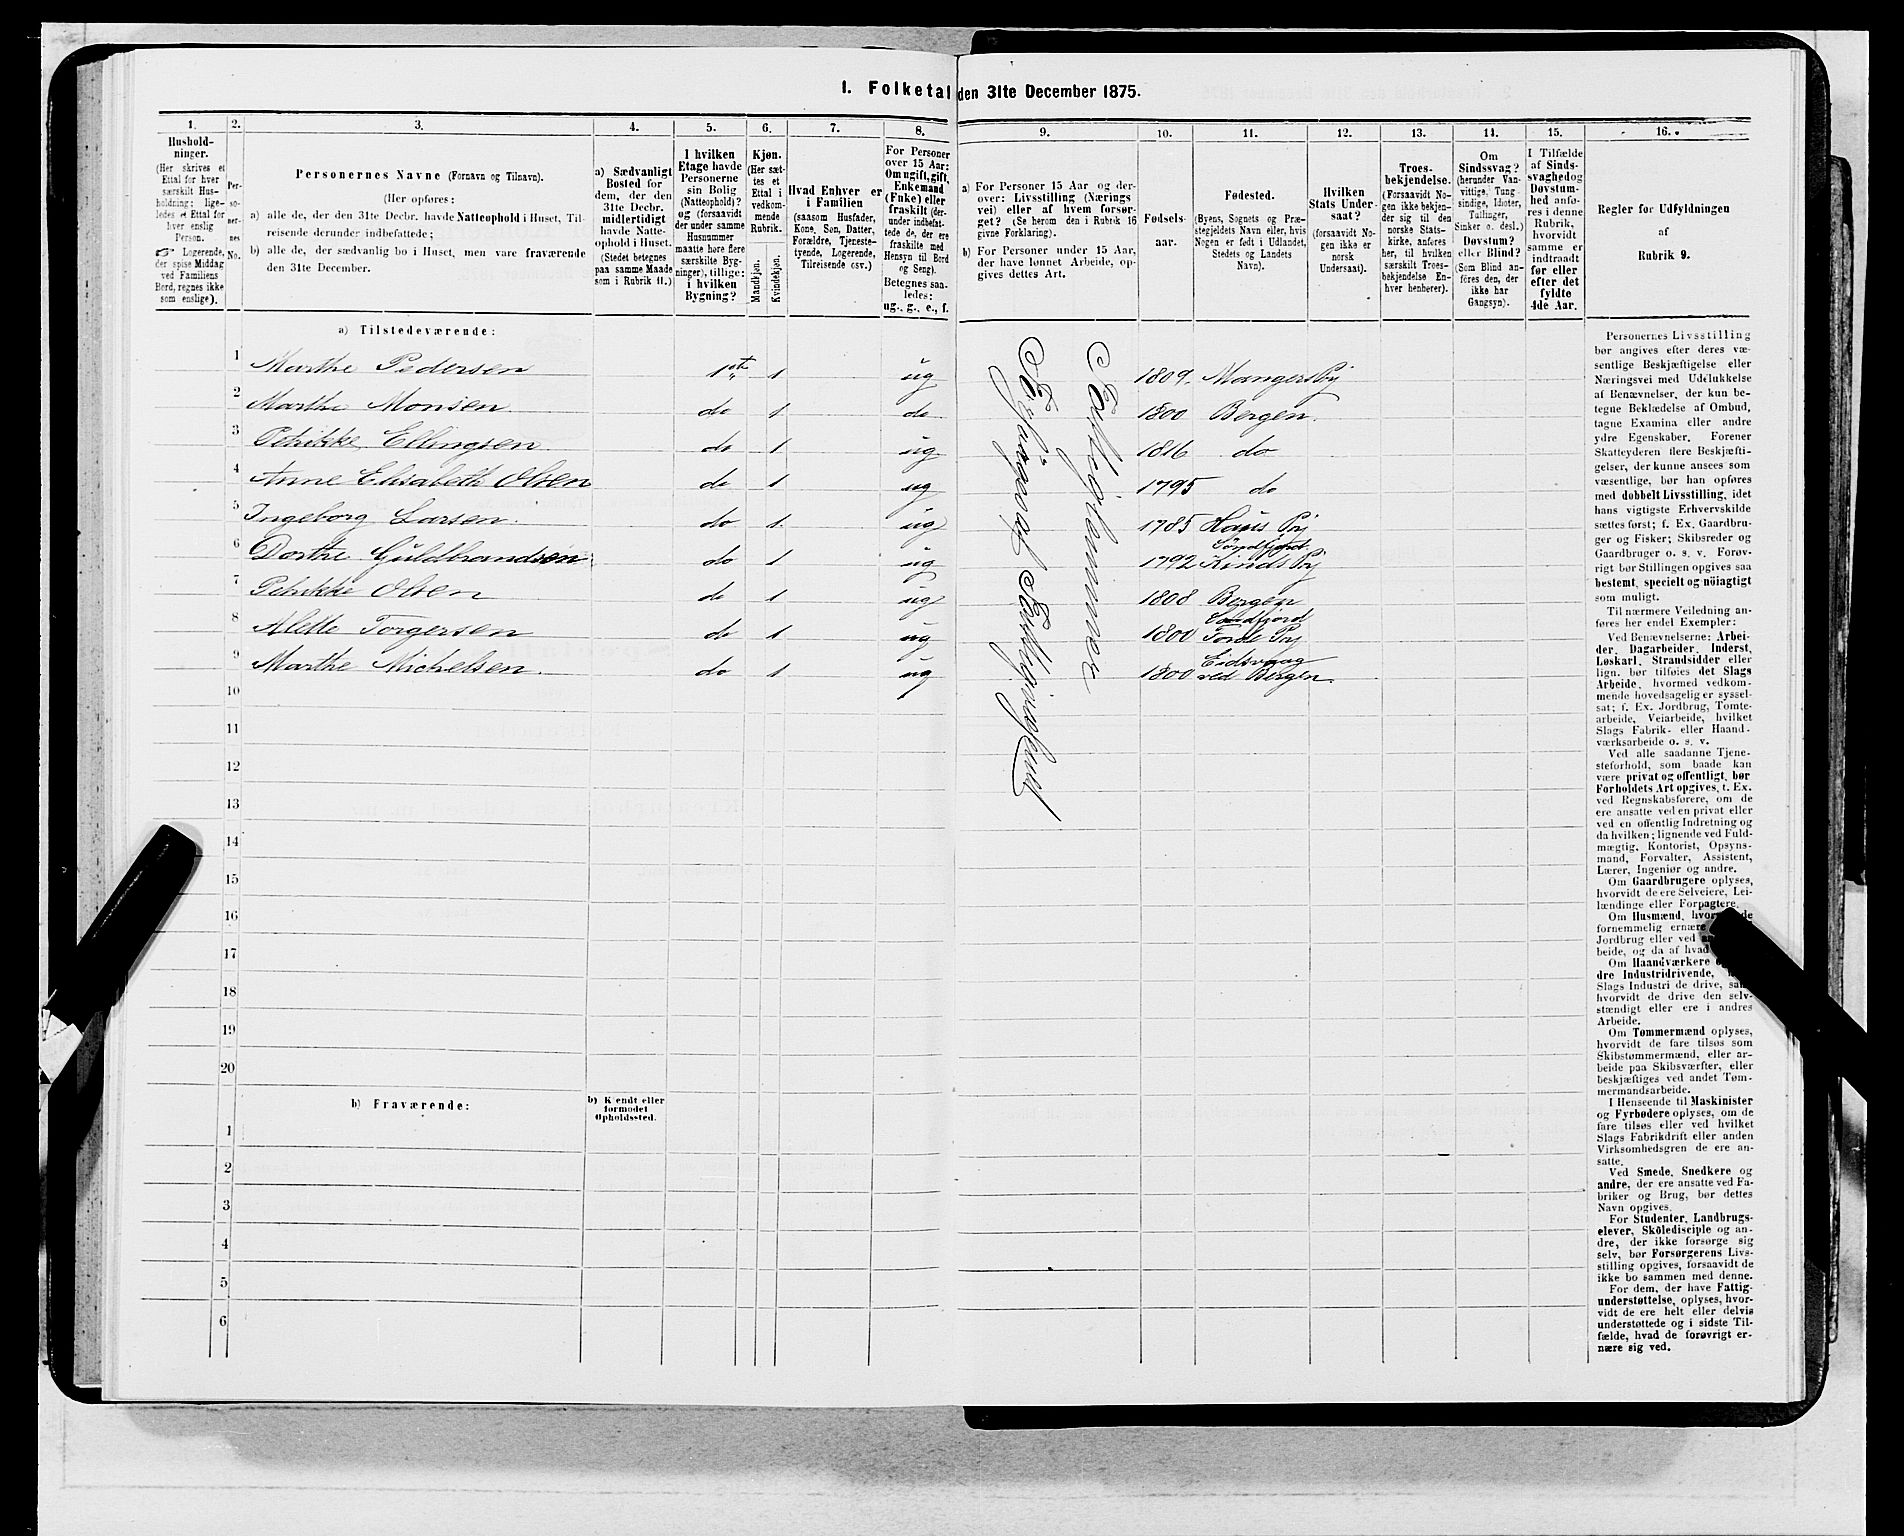 1. Folketal den 31te December 1875.
1.
2.
3.
4.
5.
6.
7.
8.
9.
10.
11.
12.
13.
14.
15.
16.
Hushold-
ninger.
(Her skrives et
Ettal for hver
særskilt Hus-
holdning; lige-
ledes et Ettal for
hver enslig
Person.
Logerende,
der spise Middag
ved Familiens
Bord, regnes ikke
som enslige).
Per-
so-
ner-
nes
No.
Personernes Navne (Fornavn og Tilnavn).
(Her opføres:
a) alle de, der den 31te Decbr. havde Natteophold i Huset, Til-
reisende derunder indbefattede;
b) alle de, der sædvanlig bo i Huset, men vare fraværende
den 31te December.
a) Sædvanligt
Bosted for
dem, der den
31te Decbr.
midlertidigt
havde Natte-
ophold i Huset.
(Stedet betegnes
paa samme Maade
som i Rubrik 11.)
I hvilken
Etage havde
Personerne
sin Bolig
(Natteophold)?
og (forsaavidt
der under samme
Husnummer
maatte høre flere
særskilte Byg-
ninger), tillige:
i hvilken
Bygning?
Kjøn.
(Her sæt-
tes et
Ettal i
vedkom-
mende
Rubrik.
Mandkjøn.
Kvindekjøn.
Hvad Enhver er
i Familien
(saasom Husfader,
Kone, Søn, Datter,
Forældre, Tjeneste-
tyende, Logerende,
Tilreisende osv.)
For Personer
over 15 Aar:
Om ugift, gift,
Enkemand
(Enke) eller
fraskilt (der-
under indbefat-
tede de, der ere
fraskilte med
Hensyn til Bord
og Seng).
Betegnes saa-
ledes:
ug., g., e., f.
a) For Personer 15 Aar og der-
over: Livsstilling (Nærings
vei) eller af hvem forsør-
get? (Se herom den i Rubrik 16
givne Forklaring).
b) For Personer under 15 Aar,
der have lønnet Arbeide, op-
gives dettes Art.
Fødsels-
aar.
Fødested.
(Byens, Sognets og Præ-
stegjeldets Navn eller, hvis
Nogen er født i Udlandet,
Stedets og Landets
Navn).
Hvilken
Stats Under-
saat?
(forsaavidt No-
gen ikke er
norsk
Undersaat).
Troes-
bekjendelse.
(Forsaavidt No-
gen ikke bekjen-
der sig til den
norske Stats-
kirke, anføres
her, til hvilken
særskilt Troes-
bekjendelse En-
hver henhører).
Om
Sindssvag?
(herunder Van-
vittige, Tung-
sindige, Idioter,
Tullinger,
Sinker o. desl.)
Døvstum?
eller Blind?
(Som Blind an-
føres den, der
ikke har
Gangsyn).
I Tilfælde
af Sinds-
svaghed og
Døvstum-
hed anfø-
res i denne
Rubrik,
hvorvidt
samme er
indtraadt
før eller
efter det
fyldte
4de Aar.
Regler for Udfyldningen
af
Rubrik 9.
a) Tilstedeværende:
1 Marthe Pedersen 1ste 1 ug 1809. Manger Pgj
2 Marthe Monsen do 1 do 1800 Bergen.
3 Petrikke Ellingsen do 1 ug 1816 do
4 Anne Elisabeth Olsen do 1 ug 1795 do
5 Ingeborg Larsen do 1 ug 1785 Haus Pgj
6 Dorthe Guldbrandsen do 1 ug 1792 Kinds Pgj
7 Petrikke Olsen do 1 ug 1808 Bergen
8 Alette Torgersen do 1 ug 1800 Førde Pgj
9 Marthe Michelsen do 1 ug 1800 Eidsvaag
ved Bergen.
10
11
12
13
14
15
16
17
18
19
20
b) Fraværende:
b) Kjendt eller
formodet
Opholdssted.
1
2
3
4
5
6
Personernes Livsstilling
bør angives efter deres væ-
sentlige Beskjæftigelse eller
Næringsvei med Udelukkelse
af Benævnelser, der kun be-
tegne Beklædelse af Ombud,
tagne Examina eller andre
ydre Egenskaber. Forener
Skatteyderen flere Beskjæfti-
gelser, der kunne ansees som
væsentlige, bør han opføres
med dobbelt Livsstilling, idet
hans vigtigste Erhvervskilde
sættes først; f. Ex. Gaardbru-
ger og Fisker; Skibsreder og
Gaardbruger o. s. v. Forøv-
rigt bør Stillingen opgives saa
bestemt, specielt og nöiagtigt
som muligt.
Til nærmere Veiledning an-
føres her endel Exempler:
Ved Benævnelserne: Arbei-
der, Dagarbeider, Inderst,
Løskarl, Strandsidder eller
lign. bør tilføies det Slags
Arbeide, hvormed vedkom-
mende hovedsagelig er syssel-
sat; f. Ex. Jordbrug, Tomte-
arbeide, Veiarbeide, hvilket
Slags Fabrik- eller Haand-
værksarbeide o. s. v.
Ved alle saadanne Tjene-
steforhold, som baade kan
være privat og offentligt, bør
Forholdets Art opgives, t. Ex.
ved Regnskabsførere, om de
ere ansatte ved en privat eller
ved en offentlig Indretning og
da hvilken; lignende ved Fuld-
mægtig, Kontorist, Opsyns-
mand, Forvalter, Assistent,
Lærer, Ingeniør og andre.
Om Gaardbrugere oplyses,
hvorvidt de ere Selveiere, Lei-
lændinge eller Forpagtere.
Om Husmænd,
fornemmelig ernære
Jordbrug eller ved
beide, og da af hvad
Om Haandværkere
dre Industridrivende,
Slags Industri de drive,
hvorvidt de drive den selv-
stændigt eller ere i andres
Arbeide.
Om Tømmermænd oplyses,
hvorvidt de fare tilsøs som
Skibstømmermænd, eller ar-
beide paa Skibsværfter, eller
beskjæftiges ved andet Tøm-
mermandsarbeide.
I Henseende til Maskinister
og Fyrbødere oplyses, om de
fare tilsøs eller ved hvilket
Slags Fabrikdrift eller anden
Virksomhedsgren de ere an-
satte.
Ved Smede, Snedkere og
andre, der ere ansatte ved Fa-
briker og Brug, bør dettes
Navn opgives.
For Studenter, Landbrugs-
elever, Skôledisciple og an-
dre, der ikke forsørge sig
selv, bør Forsørgerens Livs-
stilling opgives, forsaavidt de
ikke bo sammen med denne.
For dem, der have Fattig-
understøttelse, oplyses, hvor-
vidt de ere helt eller delvis
understøttede og i sidste Til-
fælde, hvad de forøvrigt er-
nære sig ved.